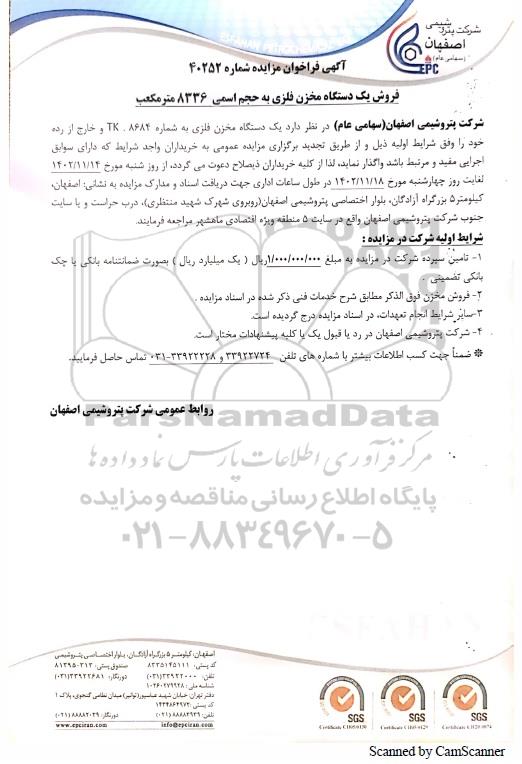 شرکت پتروشیمی
اصفهان
(سهامی عام)
EPC
ESFAHAN PETROCHEMICAL
آگهی فراخوان مزایده شماره ۴۰۲۵۲
فروش یک دستگاه مخزن فلزی به حجم اسمی ۸۳۳۶ مترمکعب
شرکت پتروشیمی اصفهان(سهامی عام) در نظر دارد یک دستگاه مخزن فلزی به شماره TK . ۸۶۸۴ و خارج از رده
خود را وفق شرایط اولیه ذیل و از طریق تجدید برگزاری مزایده عمومی به خریداران واجد شرایط که دارای سوابق
اجرایی مفید و مرتبط باشد واگذار نماید، لذا از کلیه خریداران ذیصلاح دعوت می گردد، از روز شنبه مورخ ۱۴۰۲/۱۱/۱۴
لغایت روز چهارشنبه مورخ ۱۴۰۲/۱۱/۱۸ در طول ساعات اداری جهت دریافت اسناد و مدارک مزایده به نشانی: اصفهان،
کیلومتر۵ بزرگراه آزادگان، بلوار اختصاصی پتروشیمی اصفهان(روبروی شهرک شهید منتظری)، درب حراست و یا سایت
جنوب شرکت پتروشیمی اصفهان واقع در سایت ۵ منطقه ویژه اقتصادی ماهشهر مراجعه فرمایند.
شرایط اولیه شرکت در مزایده :
۱- تامین سپرده شرکت در مزایده به مبلغ ۱/۰۰۰/۰۰۰/۰۰۰ریال ( یک میلیارد ریال ) بصورت ضمانتنامه بانکی یا چک
بانکی تضمینی .
۲- فروش مخزن فوق الذکر مطابق شرح خدمات فنی ذکر شده در اسناد مزایده .
۳-سایر شرایط انجام تعهدات، در اسناد مزایده درج گردیده است.
۴- شرکت پتروشیمی اصفهان در رد یا قبول یک یا کلیه پیشنهادات مختار است.
※ ضمناً جهت کسب اطلاعات بیشتر با شماره های تلفن ۳۳۹۲۲۷۲۴ و ۳۳۹۲۲۲۲۸-۰۳۱ تماس حاصل فرمایید.
روابط عمومی شرکت پتروشیمی اصفهان
ParsNamadData
مرکز فرآوری اطلاعات پارس نماد داده ها
پایگاه اطلاع رسانی مناقصه و مزایده
۰۲۱-۸۸۳۴۹۶۷۰-۵
اصفهان، کیلومتر ۵ بزرگراه آزادگان، بلوار اختصاصی پتروشیمی
کد پستی: ۸۳۳۵۱۴۵۱۱۱ صندوق پستی: ۸۱۳۹۵۰۳۱۳
تلفن: ۳۳۹۲۲۰۰۰(۰۳۱) دورنگار: ۳۳۹۲۲۶۸۱(۰۳۱)
شناسه ملی: ۱۰۲۶۰۲۷۹۹۴۸
دفتر تهران: خیابان شهید عباسپور(توانیر) میدان نظامی گنجوی، پلاک ۱
کد پستی: ۱۴۳۴۸۶۴۹۷۲
تلفن: ۸۸۸۸۳۹۳۹ (۰۲۱) دورنگار: ۸۸۸۸۲۰۳۹ (۰۲۱)
www.epciran.com info@epciran.com
SGS SGS SGS
Certificate CH05/0130 Certificate CH05/0129 Certificate CH20/0074
Scanned by CamScanner